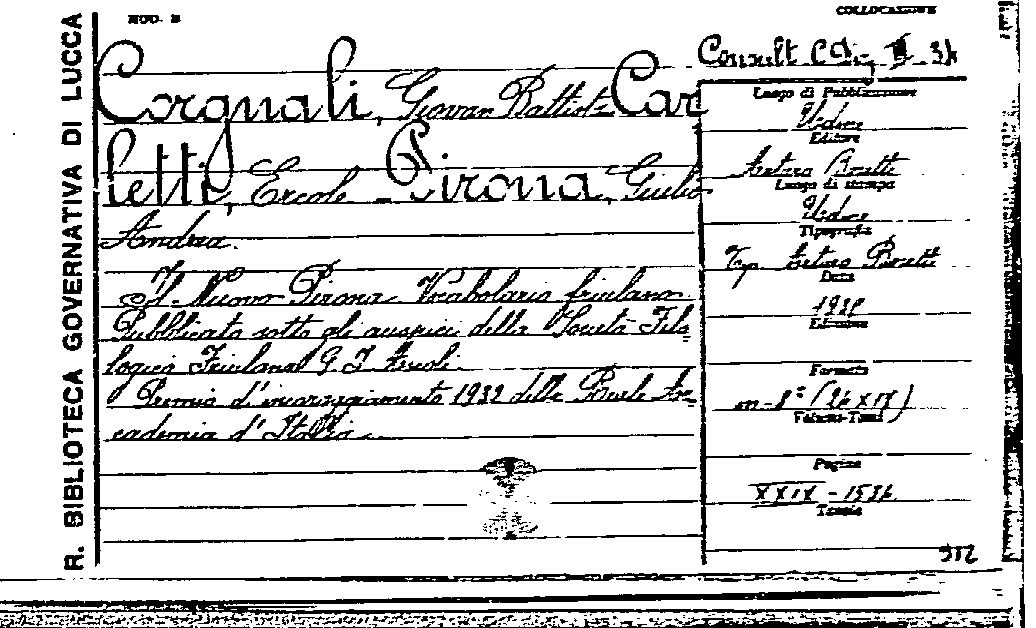 R. BIBLIOTECA GOVERNATIVA DI LUCCA
MOD. B
COLLOCAZIONE
Consult
Corgnali, Giovan Battista Car
letti, Ercole - Pirona, Giulio
Andrea.
Il Nuovo Pirona. Vocabolario friulano
Pubblicato sotto gli auspici della Società Filo=
logica Friulana G. I. Ascoli.
Premio d'incoraggiamento 1932 della Reale Ac=
cademia d'Italia.
Luogo di Pubblicazione
Udine
Editore
Arturo Bosetti
Luogo di stampa
Udine
Tipografia
Tip. Arturo Bosetti
Data
Edizione
Formato
in-8° (24 x 17)
Volume-Tomi
Pagine
XXIX - 1536
Tavole